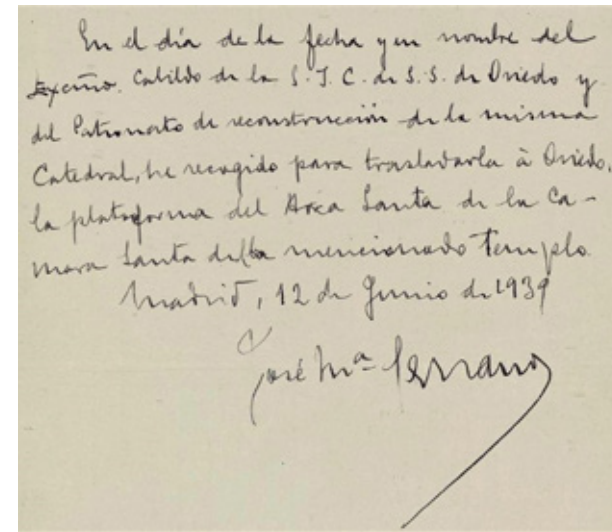 En el día de la fecha y en nombre del
Excmo. Cabildo de la S. I. C. de S. S. de Oviedo y
del Patronato de reconstrucción de la misma
Catedral, he recogido para trasladarla à Oviedo,
la plataforma del Arca Santa de la Cá-
mara Santa del mencionado Templo.
Madrid, 12 de Junio de 1939
José Mª Serrano